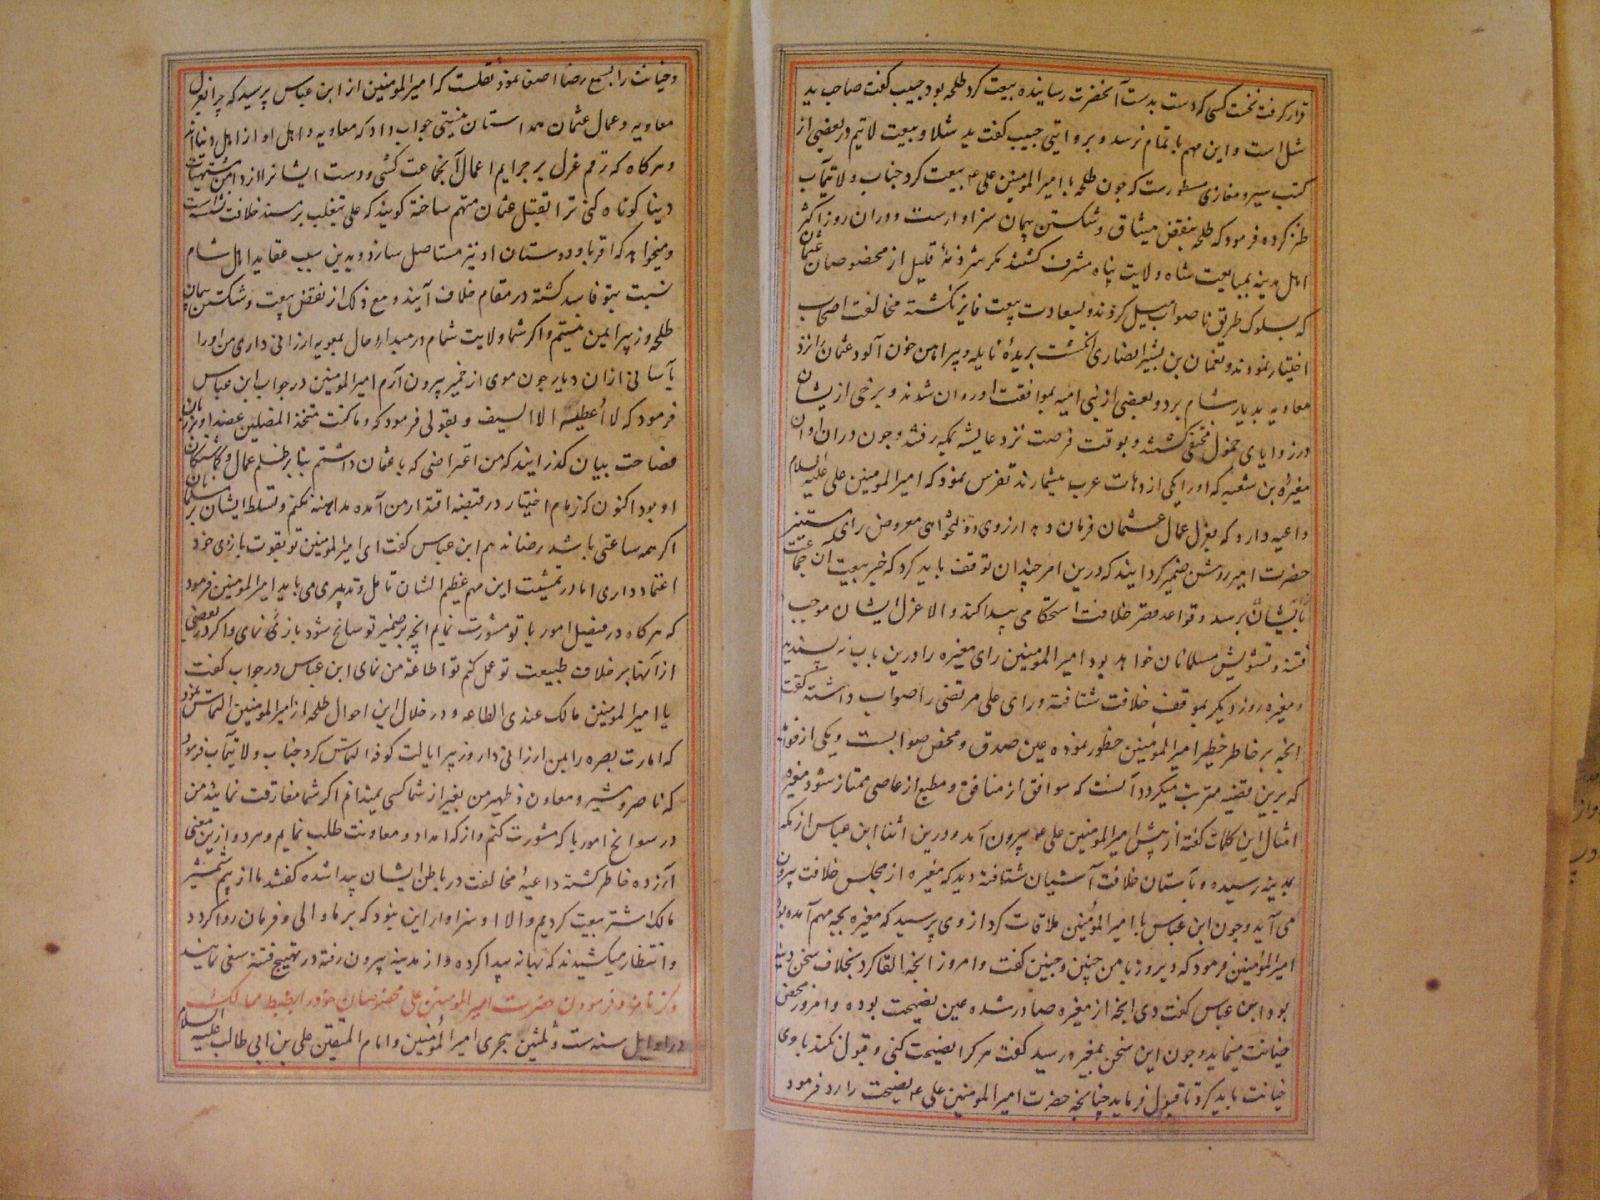 قرار گرفت نخست کسی که دست بدست آنحضرت رسانیده بیعت کرد طلحه بود حبیب گفت صاحب ید
شل است و این مهم باتمام نرسد و بروایتی حبیب گفت ید شلا و بیعت لایتم در بعضی از
کتب سیر و مغازی مسطورست که چون طلحه با امیرالمومنین علی ع بیعت کرد جناب ولایتمآب
طنز کرده فرمود که طلحه بنقض میثاق و شکستن پیمان سزاوارست و در آن روز اکثر
اهل مدینه بمبایعت شاه ولایت پناه مشرف گشتند مگر شرذمهٔ قلیل از مخصوصان عثمان
که بسلوک طریق ناصواب میل کردند و بسعادت بیعت فایز نگشته مخالفت اصحاب
اختیار نمودند و نعمان بن بشیر انصاری انگشت بریدهٔ نایله و پیراهن خون آلود عثمان را نزد
معاویه بدیار شام برد و بعضی از بنی امیه بموافقت او روان شدند و برخی ازیشان
در زوایای خمول مختفی گشتند و بوقت فرصت نزد عایشه بمکه رفتند و چون در آن اوان
مغیرة بن شعبه که او را یکی از دهات عرب میشمارند تفرس نمود که امیرالمومنین علی علیه السلام
داعیه دارد که بعزل عمال عثمان فرمان دهد از روی دولتخواهی معروض رای مستنیر
حضرت امیر روشن ضمیر گردانید که درین امر چندان توقف باید کرد که خبر بیعت آن جماعت
بایشان برسد و قواعد قصر خلافت استحکامی پیدا کند و الا عزل ایشان موجب
فتنه و تشویش مسلمانان خواهد بود امیرالمومنین رای مغیره را درین باب نه پسندید
و مغیره روز دیگر بموقف خلافت شتافته و رای علی مرتضی را صواب داشته گفت
انچه بر خاطر خطیر امیرالمومنین خطور نموده عین صدق و محض صوابست و یکی از فواید
که برین قضیه مترتب میگردد آنست که موافق از منافق و مطیع از عاصی ممتاز شود مغیره
امثال این کلمات گفته از پیش امیرالمومنین علی ع بیرون آمد و درین اثنا ابن عباس از مکه
بمدینه رسیده و بآستان خلافت آشیان شتافته دید که مغیره از مجلس خلافت بیرون
می آید و چون ابن عباس با امیرالمؤمنین ملاقات کرد از وی پرسید که مغیره بچه مهم آمده بود
امیرالمؤمنین فرمود که دیروز با من چنین و چنین گفت و امروز انچه القا کرد بخلاف سخن دینه
بود ابن عباس گفت دی انچه از مغیره صادر شده عین نصیحت بوده و امروز محض
خیانت مینماید و چون این سخن بمغیره رسید گفت هر کرا نصیحت کنی و قبول نکند با وی
خیانت باید کرد تا قبول فرماید چنانچه حضرت امیرالمومنین علی ع نصیحت را رد فرمود
و خیانت را بسمع رضا اصغا نمود نقلست که امیرالمومنین از ابن عباس پرسید که چرا بعزل
معاویه و عمال عثمان همداستان نیستی جواب داد که معاویه و اهل او از اهل دنیااند
و هرگاه که رقم عزل بر جرایم اعمال آنجماعت کشی و دست ایشانرا از دامن مشتهیات
دنیا کوتاه کنی ترا بقتل عثمان متهم ساخته گویند که علی بتغلب بر مسند خلافت نشسته
و میخواهد که اقربا و دوستان او نیز مستاصل سازد و بدین سبب عقاید اهل شام
نسبت بتو فاسد گشته در مقام خلاف آیند و مع ذلک از نقض بیعت و شکستن پیمان
طلحه و زبیر ایمن نیستم و اگر شما ولایت شام در مبداء حال بمعویه ارزانی داری من او را
بآسانی از آن دیار چون موی از خمیر بیرون آرم امیرالمومنین در جواب ابن عباس
فرمود که لا أعطیه الا السیف و بقولی فرمود که و ما کنت متخذ المضلین عضدا و بزبان
فصاحت بیان گذرانید که من اعتراضی که با عثمان داشتم بنا بر ظلم عمال و گماشتگان
او بود اکنون که زمام اختیار در قبضه اقتدار من آمده مداهنه نکنم و تسلط ایشان بر مسلمانان
اگر همه ساعتی باشد رضا ندهم ابن عباس گفت ای امیرالمومنین تو بقوت بازوی خود
اعتماد داری اما در تمشیت این مهم عظیم الشان تامل و تدبیری می باید امیرالمومنین فرمود
که هرگاه در فیصل امور با تو مشورت نمایم انچه بر ضمیر تو سانح شود باز نمای و اگر در بعضی
از آنها بر خلاف طبیعت تو عمل کنم تو اطاعه من نمای ابن عباس در جواب گفت
یا امیرالمومنین مالک عندی الطاعه و در خلال این احوال طلحه از امیرالمومنین التماس نمود
که امارت بصره را بمن ارزانی دار و زبیر ایالت کوفه التماس کرد جناب ولایتمآب فرمود
که ناصر و مشیر و معاون و ظهیر من بغیر از شما کسی نمیدانم اگر شما مفارقت نمایند من
در سوانح امور با که مشورت کنم و از که امداد و معاونت طلب نمایم و هر دو ازین معنی
آزرده خاطر گشته داعیهٔ مخالفت در باطن ایشان پیدا شده گفتند ما از بیم شمشیر
مالک اشتر بیعت کردیم و الا او سزاوار این نبود که بر ما والی و فرمان روا گردد
و انتظار میکشیدند که بهانه پیدا کرده و از مدینه بیرون رفته در تهییج فتنه سعی نمایند
ذکر نامزد فرمودن حضرت امیرالمومنین علی مخصوصان خود را بضبط ممالک
در اوایل سنه ست و ثلثین هجری امیرالمؤمنین و امام المتقین علی بن ابی طالب علیه السلام